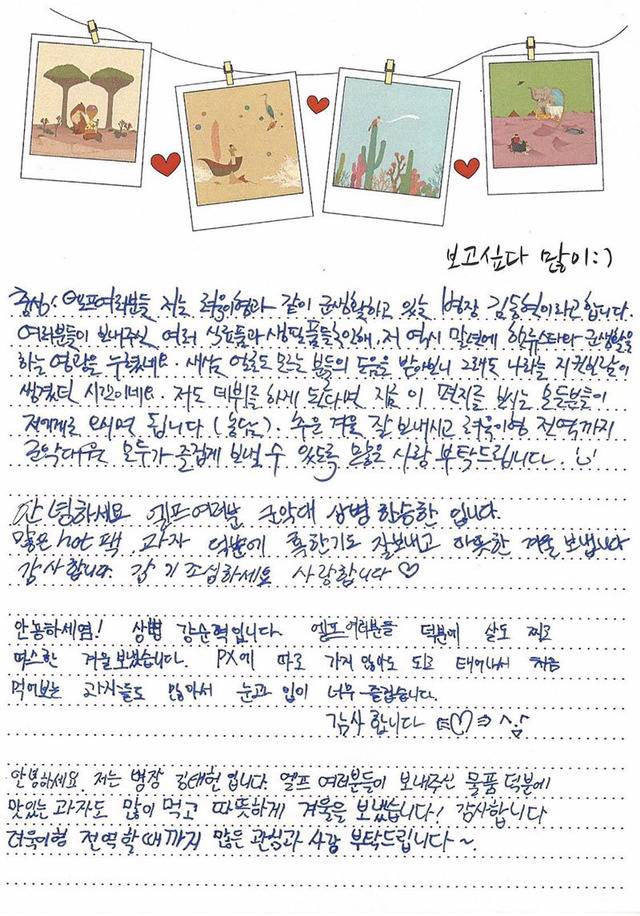 보고싶다 많이:)
충성! 엘프여러분들 저는 려욱이형과 같이 군생활하고 있는 병장 김동현이라고합니다.
여러분들이 보내주신 여러 식료품들과 생필품들로인해, 저 역시 말년에 한류스타와 군생활을
하는 영광을 누렸네요. 새삼 얼굴도 모르는 분들의 도움을 받아보니 그래도 나라를 지킨보람이
생겼던 시간이네요. 저도 데뷔를 하게 된다면 지금 이 편지를 보시는 모든분들이
저에게로 오시면 됩니다 (농담). 추운 겨울 잘 보내시고 려욱이형 전역까지
군악대원 모두가 즐겁게 보낼 수 있도록 많은 사랑 부탁드립니다.
안녕하세요 엘프여러분 군악대 상병 한승한 입니다.
많은 hot 팩, 과자 덕분에 혹한기도 잘보내고 따뜻한 겨울 보냅니다
감사합니다. 감기조심하세요 사랑합니다♡
안뇽하세염! 상병 강순혁입니다. 엘프여러분들 덕분에 살도 찌고
따스한 겨울보냈습니다. PX에 따로 가지 않아도 되고 태어나서 처음
먹어보는 과자들도 많아서 눈과 입이 너무 즐겁습니다.
감사합니다
안녕하세요 저는 병장 김태헌입니다. 엘프 여러분들이 보내주신 물품 덕분에
맛있는 과자도 많이 먹고 따뜻하게 겨울을 보냈습니다! 감사합니다
려욱이형 전역할때까지 많은 관심과 사랑 부탁드립니다~